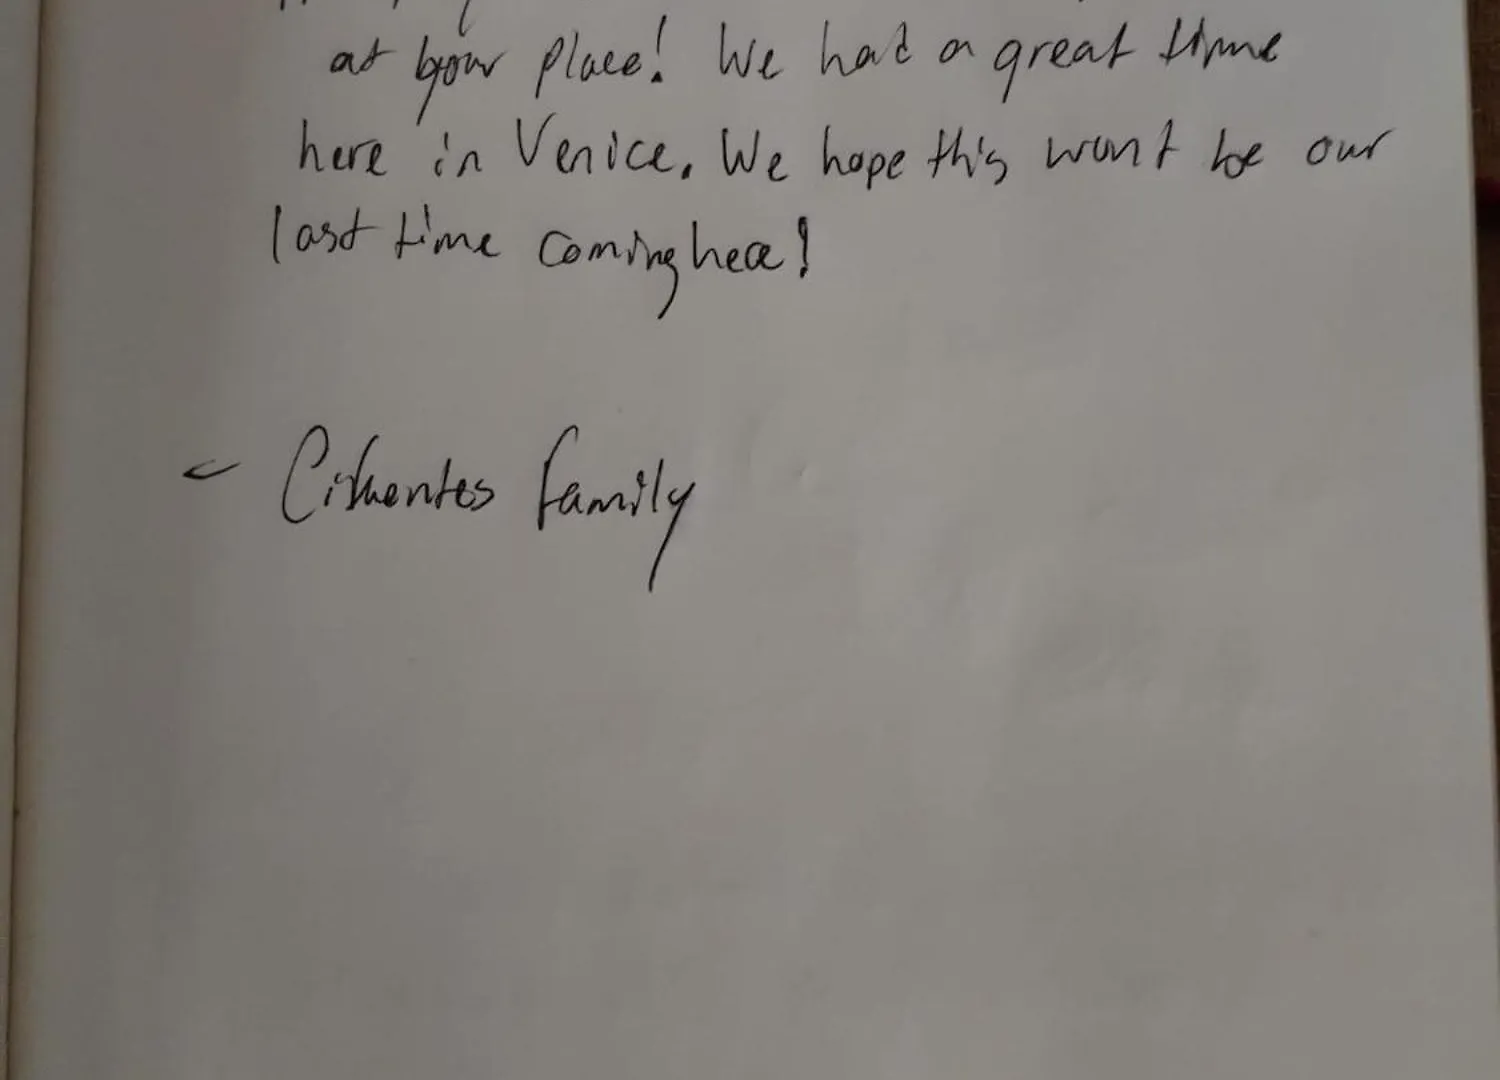 at your place! We had a great time
here in Venice. We hope this wont be our
last time coming here!
- Cifuentes family